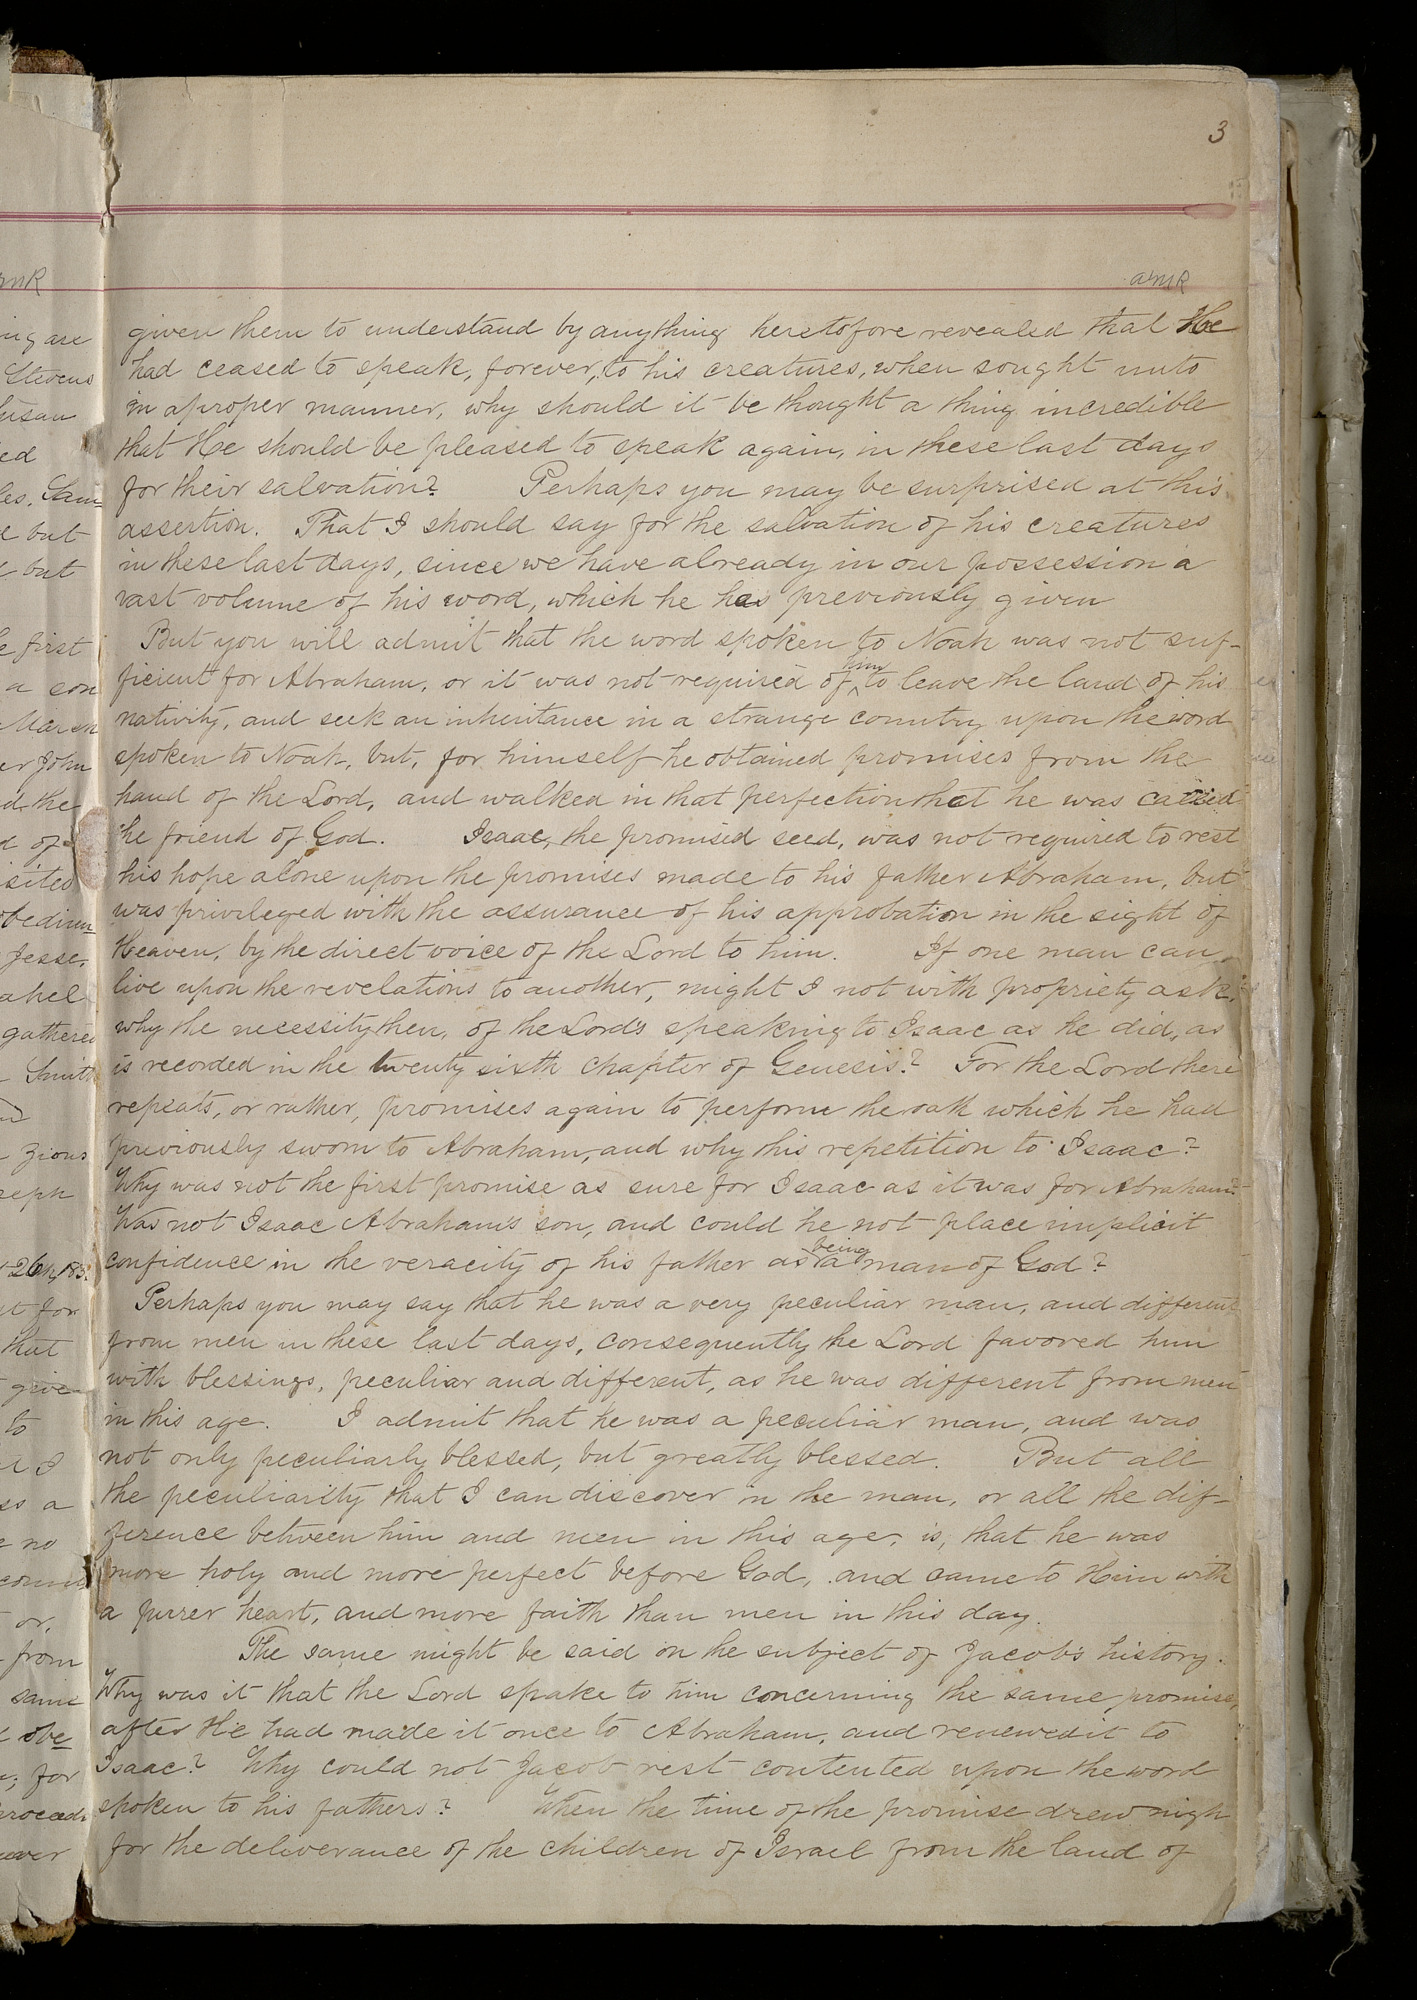 3
amR
given them to understand by anything heretofore revealed that He
had ceased to speak, forever, to his creatures, when sought unto
in a proper manner, why should it be thought a thing incredible
that He should be pleased to speak again, in these last days
for their salvation? Perhaps you may be surprised at this
assertion. That I should say for the salvation of his creatures
in these last days, since we have already in our possession a
vast volume of his word, which he has previously given
But you will admit that the word spoken to Noah was not suf-
ficient for Abraham, or it was not required of him to leave the land of his
nativity, and seek an inheritance in a strange country upon the word
spoken to Noah, but, for himself he obtained promises from the
hand of the Lord, and walked in that perfection that he was called
the friend of God. Isaac, the promised seed, was not required to rest
his hope alone upon the promises made to his father Abraham, but
was privileged with the assurance of his approbation in the sight of
Heaven, by the direct voice of the Lord to him. If one man can
live upon the revelations to another, might I not with propriety ask,
why the necessity then, of the Lords speaking to Isaac as he did, as
is recorded in the twenty sixth chapter of Genesis? For the Lord there
repeats, or rather, promises again to perform the oath which he had
previously sworn to Abraham, and why this repetition to Isaac?
Why was not the first promise as sure for Isaac as it was for Abraham?
Was not Isaac Abraham's son, and could he not place implicit
confidence in the veracity of his father as being a man of God?
Perhaps you may say that he was a very peculiar man, and different
from men in these last days, consequently the Lord favored him
with blessings, peculiar and different, as he was different from men
in this age. I admit that he was a peculiar man, and was
not only peculiarly blessed, but greatly blessed. But all
the peculiarity that I can discover in the man, or all the dif-
ference between him and men in this age, is, that he was
more holy and more perfect before God, and came to Him with
a purer heart, and more faith than men in this day.
The same might be said on the subject of Jacob's history.
Why was it that the Lord spake to him concerning the same promise,
after He had made it once to Abraham, and renewed it to
Isaac? Why could not Jacob rest contented upon the word
spoken to his fathers? When the time of the promise drew nigh
for the deliverance of the children of Israel from the land of